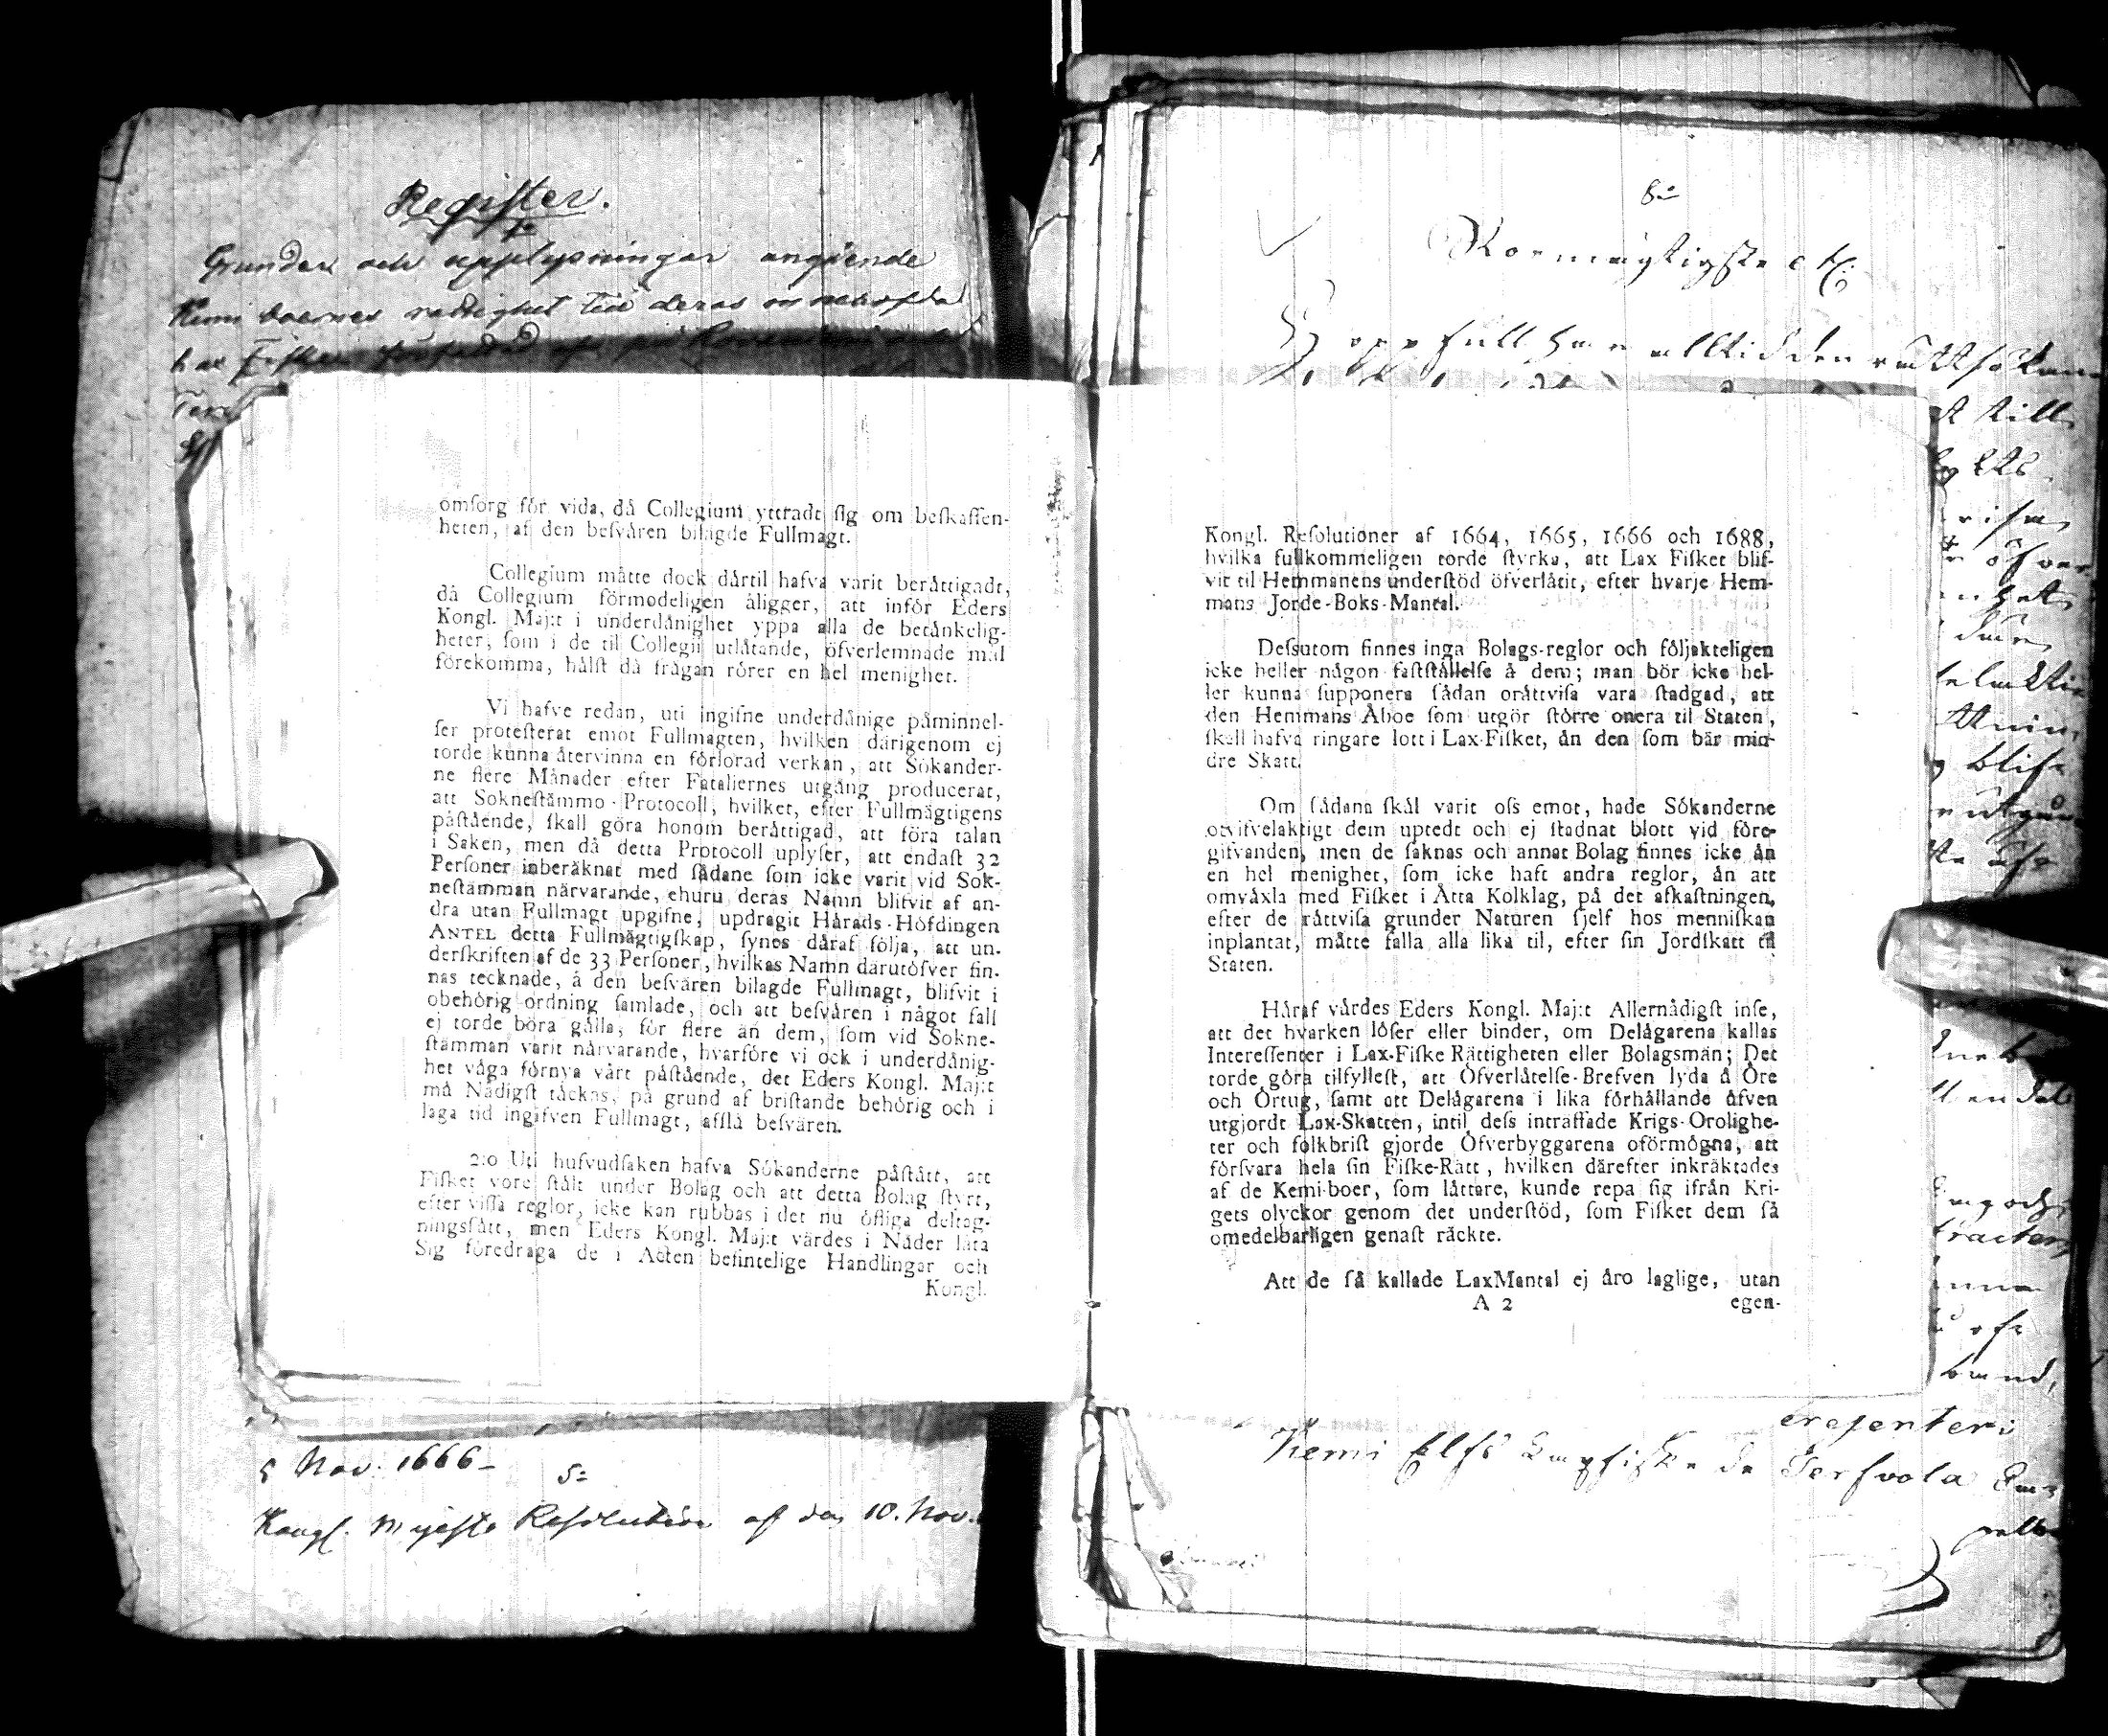 Register.
Grunder och upplysningar angående
Kemi boernes rättighet till deras
5 Nov. 1666-
5:
Kongl. Majests Resolution af den 10. Nov.
omſorg för vida, då Collegium yttradt ſig om beſkaffen-
heten, af den beſvären bilagde Fullmagt.
Collegium måtte dock därtil hafva varit berättigadt,
då Collegium förmodeligen åligger, att inför Eders
Kongl. Maj:t i underdånighet yppa alla de betänkelig-
heter, ſom i de til Collegii utlåtande, öfverlemnade mål
förekomma, hälſt då frågan rörer en hel menighet.
Vi hafve redan, uti ingifne underdånige påminnel-
ſer proteſterat emot Fullmagten, hvilken därigenom ej
torde kunna återvinna en förlorad verkan, att Sökander-
ne flere Månader efter Fataliernes utgång producerat,
att Sokneſtämmo-Protocoll, hvilket, efter Fullmägtigens
påſtående, ſkall göra honom berättigad, att föra talan
i Saken, men då detta Protocoll uplyſer, att endaſt 32
Perſoner inberäknat med ſådane ſom icke varit vid Sok-
neſtämman närvarande, ehuru deras Namn blifvit af an-
dra utan Fullmagt upgifne, updragit Härads-Höfdingen
ANTEL detta Fullmägtigſkap, ſynes däraf följa, att un-
derſkriften af de 33 Perſoner, hvilkas Namn därutöfver fin-
nas tecknade, å den beſvären bilagde Fullmagt, blifvit i
obehörig ordning ſamlade, och att beſvären i något fall
ej torde böra gälla, för flere än dem, ſom vid Sokne-
ſtämman varit närvarande, hvarföre vi ock i underdånig-
het våga förnya vårt påſtående, det Eders Kongl. Maj:t
må Nådigſt täckas, på grund af briſtande behörig och i
laga tid ingifven Fullmagt, afſlå beſvären.
2:o Uti hufvudſaken hafva Sökanderne påſtått, att
Fiſket vore ſtält under Bolag och att detta Bolag ſtyrt,
efter viſſa reglor, icke kan rubbas i det nu öfliga deltag-
ningsſätt, men Eders Kongl. Maj:t värdes i Nåder låta
Sig föredraga de i Acten befintelige Handlingar och
Kongl.
8:
Stormägtigste etc:
Kongl. Reſolutioner af 1664, 1665, 1666 och 1688,
hvilka fullkommeligen torde ſtyrka, att Lax Fiſket blif-
vit til Hemmanens underſtöd öfverlåtit, efter hvarje Hem-
mans Jorde-Boks-Mantal.
Deſsutom finnes inga Bolags-reglor och följakteligen
icke heller någon faſtſtällelſe å dem; man bör icke hel-
ler kunna ſupponera ſådan orättviſa vara ſtadgad, att
den Hemmans Åboe ſom utgör större onera til Staten,
ſkall hafva ringare lott i Lax-Fiſket, än den ſom bär min-
dre Skatt.
Om ſådana ſkäl varit oſs emot, hade Sökanderne
otvifvelaktigt dem uptedt och ej ſtadnat blott vid före-
gifvanden, men de ſaknas och annat Bolag finnes icke än
en hel menighet, ſom icke haft andra reglor, än att
omväxla med Fiſket i Åtta Kolklag, på det afkaſtningen,
efter de rättviſa grunder Naturen ſjelf hos menniſkan
inplantat, måtte falla alla lika til, efter ſin Jordſkatt til
Staten.
Häraf värdes Eders Kongl. Maj:t Allernådigſt inſe,
att det hvarken löſer eller binder, om Delägarena kallas
Intereſſenter i Lax-Fiſke Rättigheten eller Bolagsmän; Det
torde göra tilfylleſt, att Öfverlåtelſe-Brefven lyda å Öre
och Örtug, ſamt att Delägarena i lika förhållande äfven
utgjordt Lax-Skatten, intil deſs inträffade Krigs-Orolighe-
ter och folkbriſt gjorde Öfverbyggarena oförmögna, att
förſvara hela ſin Fiſke-Rätt, hvilken därefter inkräktades
af de Kemi-boer, ſom lättare, kunde repa ſig ifrån Kri-
gets olyckor genom det underſtöd, ſom Fiſket dem ſå
omedelbarligen genaſt räckte.
Att de ſå kallade LaxMantal ej äro laglige, utan
A 2
egen-
Kemi Elfs Laxfiske